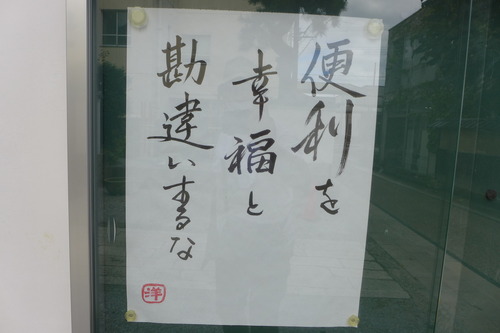 便利を
幸福と
勘違いするな
洋